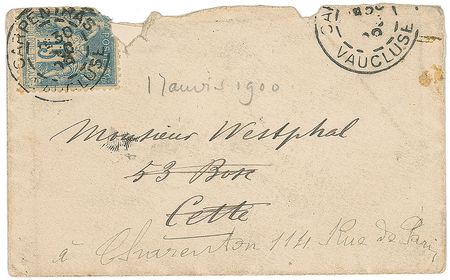 CARPENTRAS
VAUCLUSE
VAUCLUSE
1900
Monsieur Westphal
53 Bose
Cette
à Charenton 114 Rue de Paris